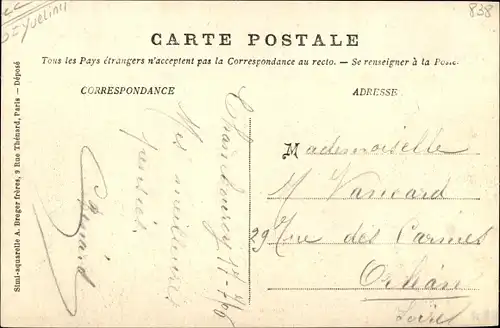 838
CARTE POSTALE
Tous les Pays étrangers n'acceptent pas la Correspondance au recto. — Se renseigner à la Poste.
CORRESPONDANCE
ADRESSE
Mes meilleures
pensées
Mademoiselle
M Vancard
29 Rue des Carmes
Orléans
Loiret
Simi-aquarelle A. Breger frères, 9 Rue Thénard, Paris — Déposé